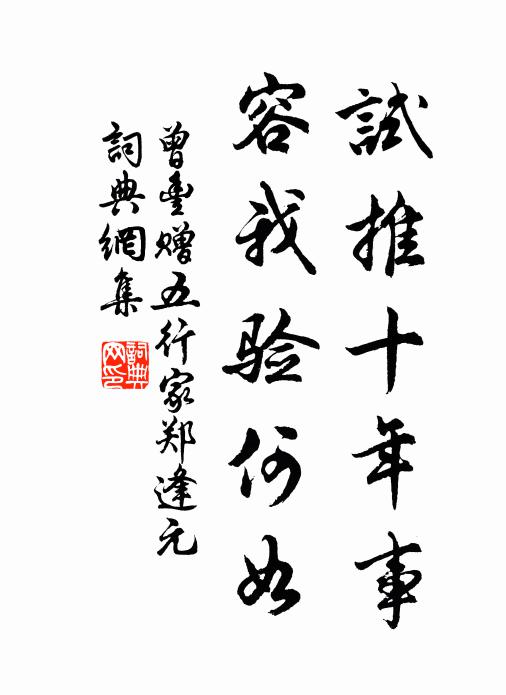 試推十年事
容我验何如
曾豊赠五行家郑逢元
詞典網集
詞典網印